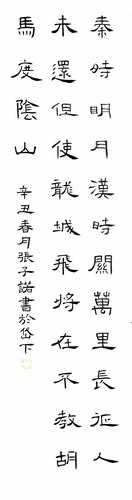 秦時明月漢時關萬里長征人
未還但使龍城飛將在不教胡
馬度陰山
辛丑春月張子諾書於岱下